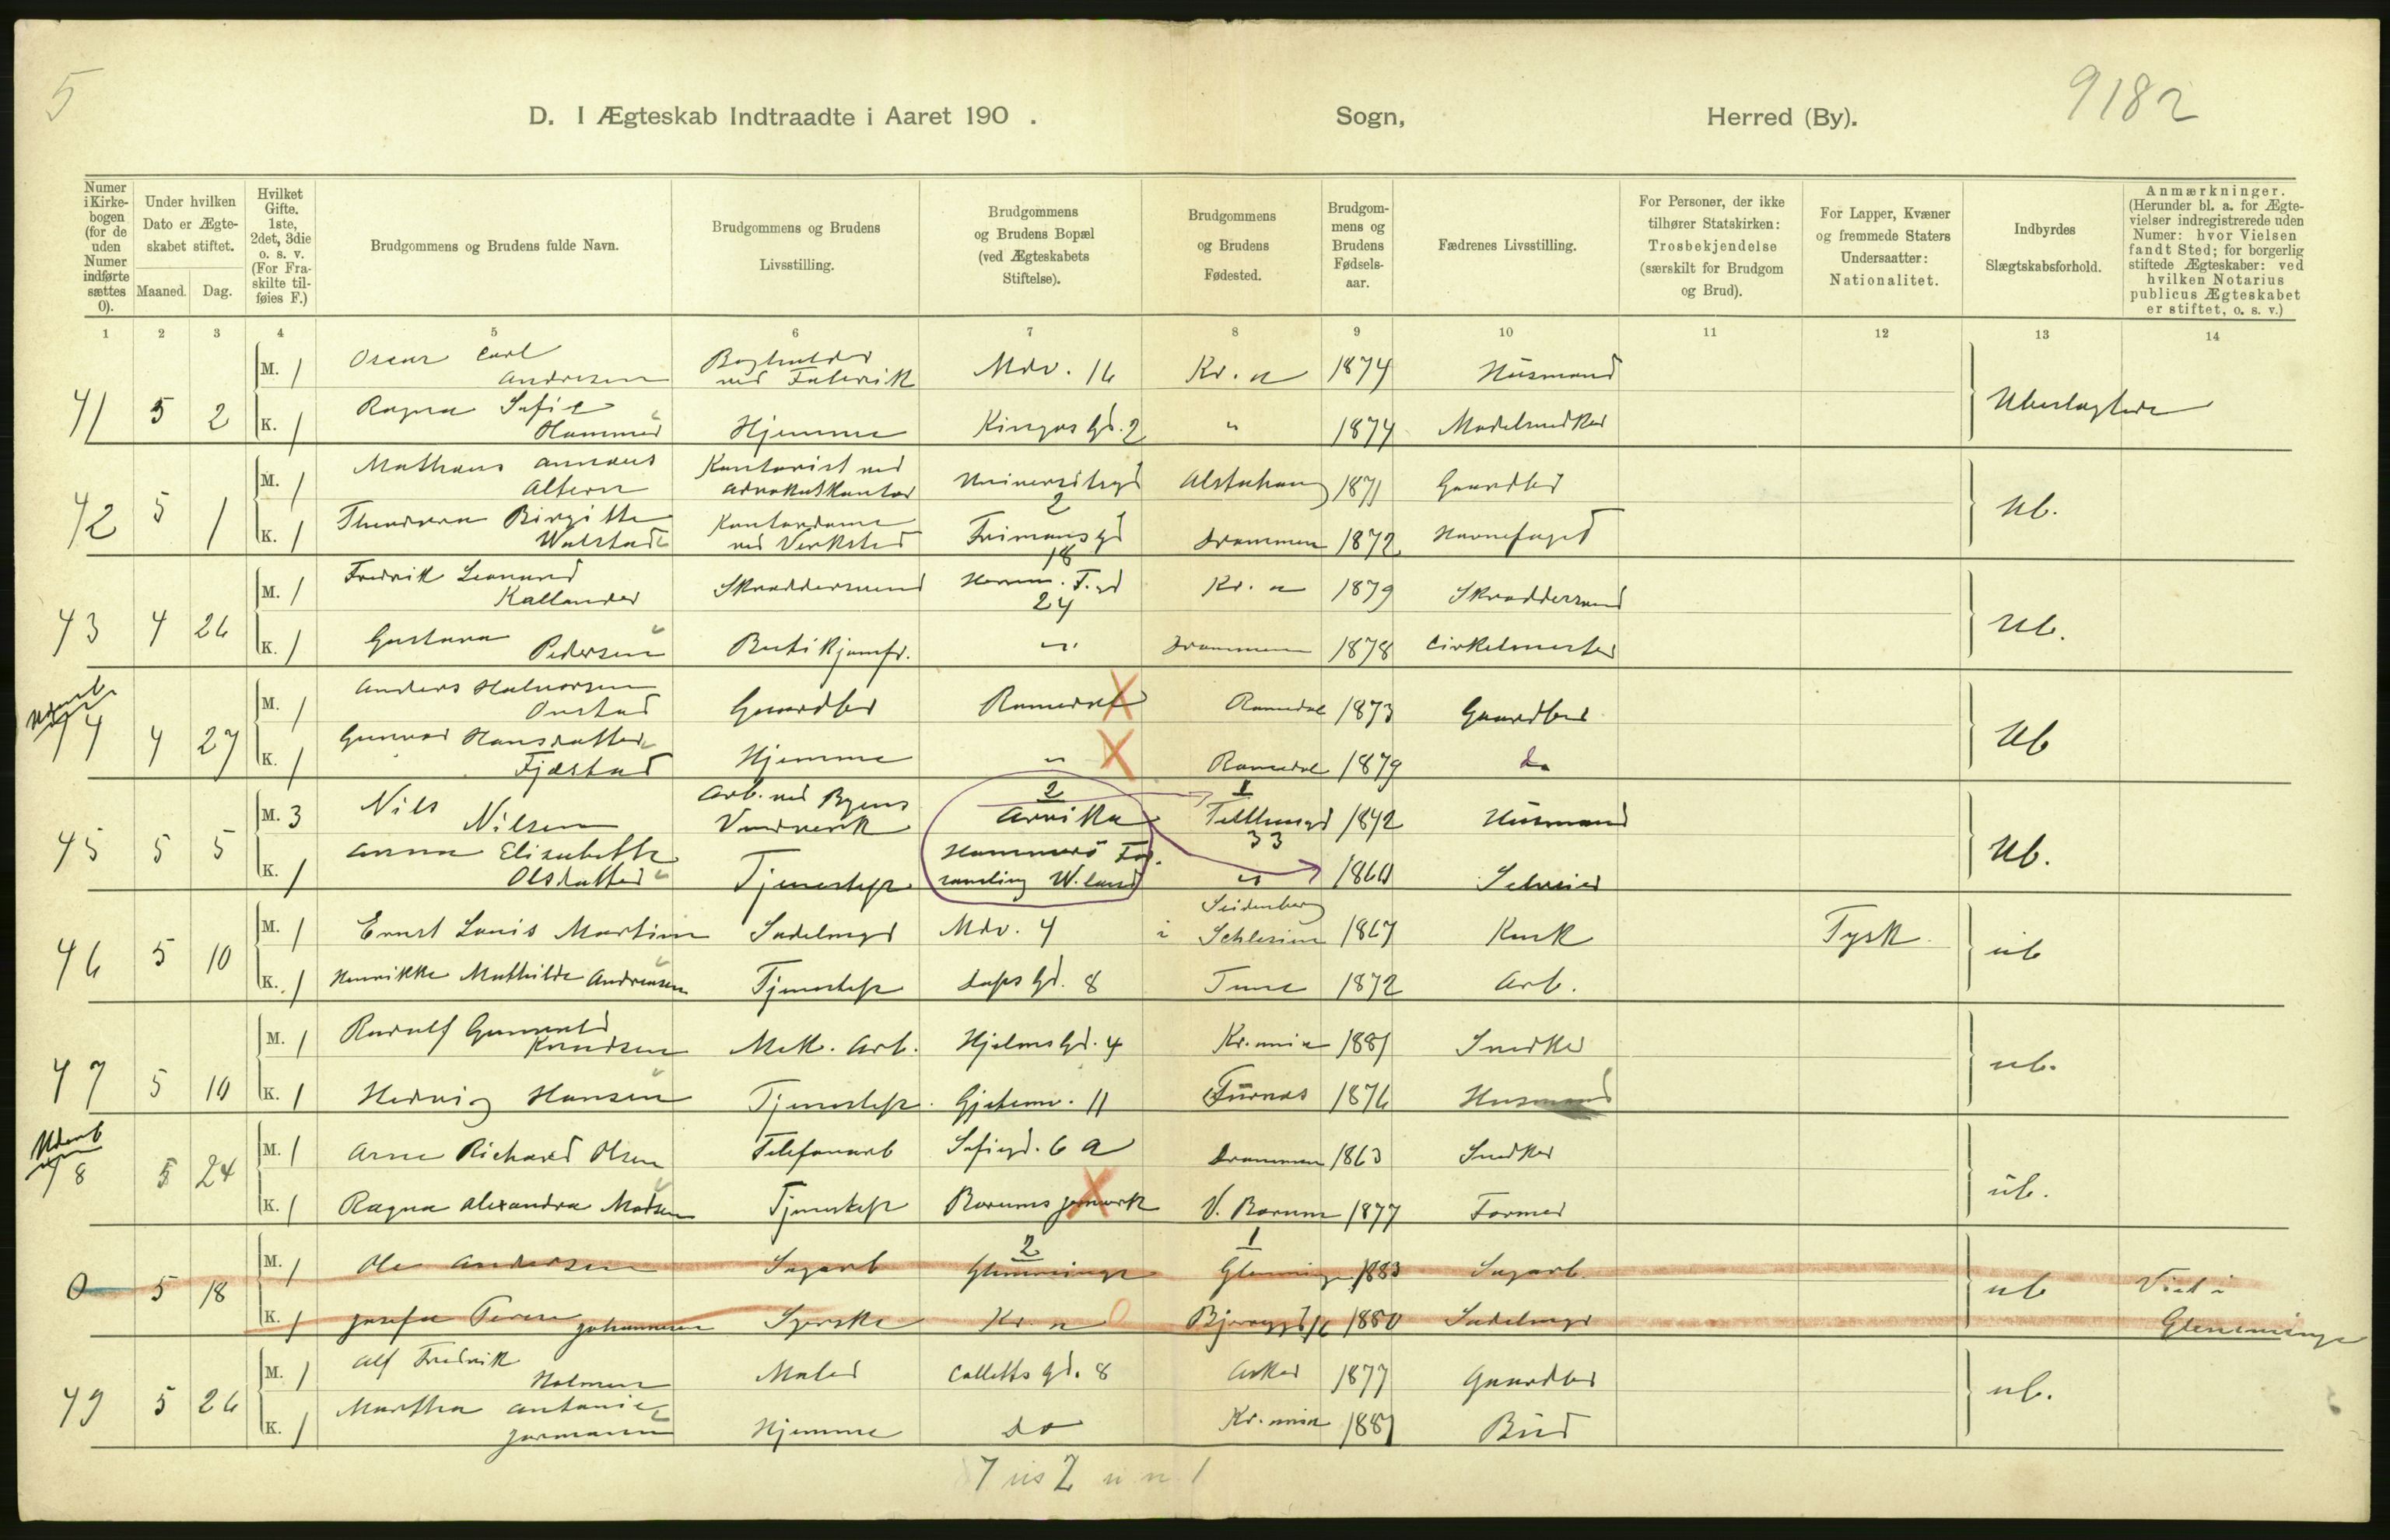 5
9182
D. I Ægteskab Indtraadte i Aaret 190 . Sogn, Herred (By).
Numer i Kirke-bogen (for de uden Numer indførte sættes 0).
Under hvilken Dato er Ægte-skabet stiftet.
Maaned. Dag.
Hvilket Gifte. 1ste, 2det, 3die o. s. v. (For Fra-skilte til-føies F.)
Brudgommens og Brudens fulde Navn.
Brudgommens og Brudens Livsstilling.
Brudgommens og Brudens Bopæl (ved Ægteskabets Stiftelse).
Brudgommens og Brudens Fødested.
Brudgom-mens og Brudens Fødsels-aar.
Fædrenes Livsstilling.
For Personer, der ikke tilhører Statskirken: Trosbekjendelse (særskilt for Brudgom og Brud).
For Lapper, Kvæner og fremmede Staters Undersaatter: Nationalitet.
Indbyrdes Slægtskabsforhold.
Anmærkninger. (Herunder bl. a. for Ægte-vielser indregistrerede uden Numer: hvor Vielsen fandt Sted; for borgerlig stiftede Ægteskaber: ved hvilken Notarius publicus Ægteskabet er stiftet, o. s. v.)
1 2 3 4 5 6 7 8 9 10 11 12 13 14
41 5 2 M. 1 Oscar Carl Andresen Bogholder ved Fabrik Mdv. 16 Kr. a 1874 Husmand Ubeslægtede
K. 1 Ragna Sofie Hammer Hjemme Kingos Gd. 2 " 1874 Modelsnedker
42 5 1 M. 1 Mathæus Annæus Altern Kontorist ved Advokatkontor Universitsgd 2 Alstahaug 1871 Gaardbr Ub.
K. 1 Theodora Birgitte Walstad Kontordame ved Verksted Frimansgd 18 Drammen 1872 Havnefoged
43 4 26 M. 1 Fredrik Leonard Kallander Skræddersvend 24 Kr. a 1879 Skræddersvend Ub.
K. 1 Gustava Pedersen Butikjomfr. " Drammen 1878 Cirkelmester
44 4 27 M. 1 Anders Halvorsen Onstad Gaardbr Romedal Romedal 1873 Gaardbr Ub
K. 1 Gunvor Hansdatter Fjæstad Hjemme " Romedal 1879 do
45 5 5 M. 3 Nils Nilsen Arb. ved Byens Vandverk 2 Arvika 1 Telthusgd 33 1842 Husmand Ub.
K. 1 Anna Elisabeth Olsdatter Tjenestepr Hammerö Forsamling W.land " 1860
46 5 10 M. 1 Ernst Louis Martin Sadelmgr Mdv. 4 Seidenberg i Schlesien 1867 Kusk Tysk ub
K. 1 Henrikke Mathilde Andreasen Tjenestepr Daps Gd. 8 Tune 1872 Arb.
47 5 10 M. 1 Rudolf Gunvald Knudsen Mek. Arb. Hjelms Gd. 4 Kr.ania 1881 Snedker ub.
K. 1 Hedvig Hansen Tjenestepr. Gjetemv. 11 Furnæs 1876 Husmand
Udenb
48 5 24 M. 1 Arne Richard Olsen Telefonarb Sofiegd. 6 a Drammen 1863 Snedker ub.
K. 1 Ragna Alexandra Madsen Tjenestepr Bærums jernverk V. Bærum 1877 Former
0 5 18 M. 1 Ole Andersen Sagarb 2 Glemminge 1 Glemminge 1883 Sagarb. ub Viet i Glemminge
K. 1 Josefa Johannesen Syerske Kr. a 1880 Sadelmgr
49 5 26 M. 1 Alf Fredrik Holmen Maler Colletts Gd. 8 Asker 1877 Gaardbr ub.
K. 1 Martha Antonie Jormann Hjemme do Kr.ania 1881 Bud